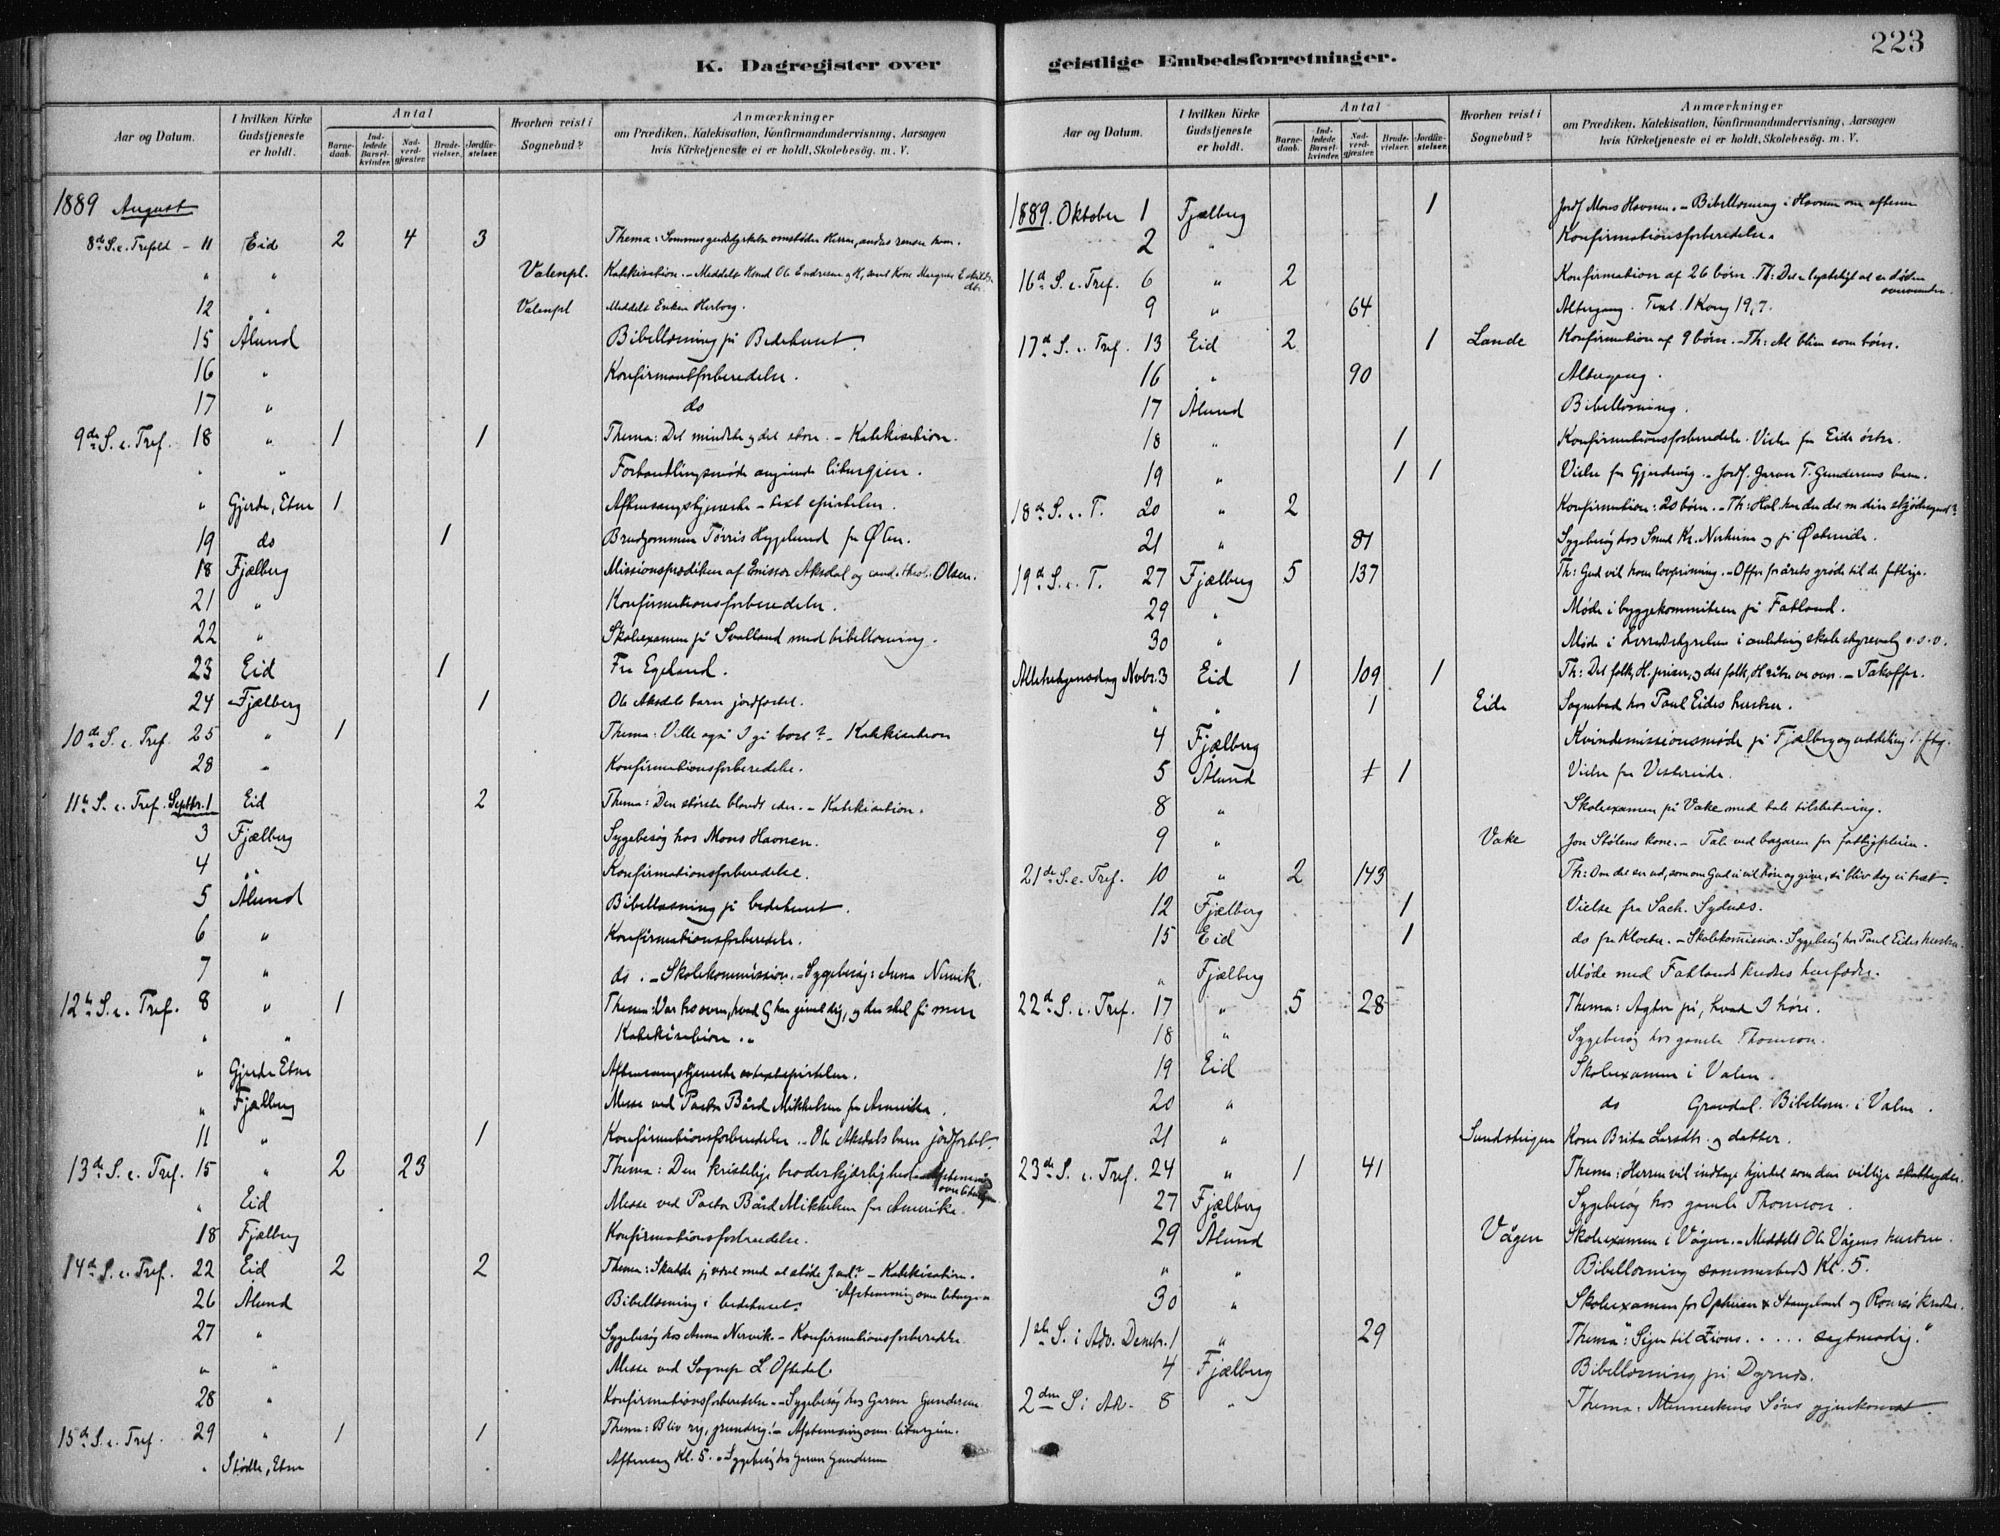 223
K. Dagregister over geistlige Embedsforretninger.
Aar og Datum.
I hvilken Kirke Gudstjeneste er holdt.
Antal
Barnedaab.
Indledede Barselkvinder.
Nadverdgjæster.
Brudevielser.
Jordfæstelser.
Hvorhen reist i Sognebud?
Anmærkninger
om Prædiken, Katekisation, Konfirmandundervisning, Aarsagen
hvis Kirketjeneste ei er holdt, Skolebesög. m. V.
1889 August
8de S. e. Trefold - 11 Eid 2 4 3 Thema:
" " Valenpl. Katekisation. - Meddelt
12 " Valenpl Meddelt Enken Herborg.
15 Ålund Bibellæsning på Bedehuset.
16 " Konfirmantforberedelse.
17 " do
9de S. e. Tref. 18 " 1 1 Thema: Det mindste og det store. - Katekisation.
" " Forhandlingsmøde angående liturgien.
" Gjerde, Etne 1 Aftensangstjeneste - text epistelen.
19 do 1 Brudgommen Tørris Hygelund fra Ølen.
18 Fjælberg Missionsprædiken af Emissær Aksdal og cand. theol. Olsen.
21 " Konfirmationsforberedelse.
22 " Skolexamen på Svalland med bibellæsning.
23 Eid 1 Fra Egeland.
24 Fjælberg 1 Ole Aksdals barn jordfæstet.
10de S. e. Tref. 25 " 1 Thema: Ville også I gå bort? - Katekisation
28 " Konfirmationsforberedelse.
11te S. e. Tref. Septbr. 1 Eid 2 Thema: Den største blandt eder. - Katekisation.
3 Fjælberg Sygebesøg hos Mons Havnen.
4 " Konfirmationsforberedelse.
5 Ålund Bibellæsning på bedehuset.
6 " Konfirmationsforberedelse.
7 " do. - Skolekommission. - Sygebesøg: Anna Nervik.
12te S. e. Tref. 8 " 1 Thema: Vær tro over, hvad G har givet dig, og der skal få mere
" " Katekisation.
" Gjerde Etne Aftensangstjeneste
" Fjælberg Messe ved Pastor Bård Mikkelsen fra Amerika.
11 " 1 Konfirmationsforberedelse. - Ole Aksdals barn jordfæstet.
13de S. e. Tref. 15 " 2 23 Thema: Den kristelige broderkjærlighed
" Eid Messe ved Pastor Bård Mikkelsen fra Amerika.
18 Fjælberg Konfirmationsforberedelse.
14de S. e. Tref. 22 Eid 2 2 Thema: - Katekisation.
Afstemning over liturgien
26 Ålund Bibellæsning i bedehuset.
27 " Sygebesøg hos Anna Nervik. - Konfirmationsforberedelse.
" " Messe ved Sognepr L Oftedal.
28 " Konfirmationsforberedelse. - Sygebesøg hos Garver Gundersen
15de S. e. Tref. 29 " 1 1 Thema: - Afstemning over liturgien.
" Stødle, Etne Aftensang Kl. 5. - Sygebesøg hos Garver Gundersen
Aar og Datum.
I hvilken Kirke Gudstjeneste er holdt.
Antal
Barnedaab.
Indledede Barselkvinder.
Nadverdgjæster.
Brudevielser.
Jordfæstelser.
Hvorhen reist i Sognebud?
Anmærkninger
om Prædiken, Katekisation, Konfirmandundervisning, Aarsagen
hvis Kirketjeneste ei er holdt, Skolebesög. m. V.
1889. Oktober 1 Fjælberg 1 Jordf. Mons Havnen. - Bibellæsning i Havnen om aftenen
2 " Konfirmationsforberedelse.
16de S. e. Tref. 6 " 2 Konfirmation af 26 børn.
9 " 64 Altergang. Text 1 Kong 19,7.
17de S. e. Tref. 13 Eid 2 1 Lande Konfirmation af 9 børn. - Th: At blive som børn.
16 " 90 Altergang.
17 Ålund Bibellæsning.
18 " 1 Konfirmationsforberedelse. Vielse fra Eide østre.
19 " 1 1 Vielse fra Gjerdevig. - Jordf. Garver T. Gundersens barn.
18de S. e. T. 20 " 2 Konfirmation: 20 børn. - Th:
21 " 81 Sygebesøg hos Nerheim og på Østreide.
19de S. e. T. 27 Fjælberg 5 137 Th: Gud vil have lovprisning. - Offer for årets grøde til de fattige.
29 " Møde i byggekommiteen på Fatland.
30 " Møde i herredsstyrelsen i anledning skolestyrevalg o. s. v.
Allehelgensdag Novbr. 3 Eid 1 109 1 Th: Det folk, H. priser, og det folk, H. - Takoffer.
" " 1 Eide Sognebud hos Paul Eides hustru.
4 Fjælberg Kvindemissionsmøde på Fjælberg og uddeling t. fttg.
5 Ålund 1 Vielse fra Vestereide.
8 " Skolexamen på Vake med tale tilslutning.
9 " Vake Jon Stølens kone. - Tale ved bazaren for fattigpleien.
21de S. e. Tref. 10 " 2 143 Th: Om det ser ud, som om Gud ei vil høre og give, så bliv dog ei træt.
12 Fjælberg 1 Vielse fra Sach. Sydnes.
15 Eid 1 do fra Kloster. - Skolekomission. Sygebesøg hos Paul Eides hustru.
" Fjælberg Møde med Fatlands kredses husfædre.
22de S. e. Tref. 17 " 5 28 Thema: Agter på, hvad I høre.
18 " Sygebesøg hos gamle Thomson.
19 Eid Skolexamen i Valen.
20 " do Gravdal. Bibellæsn. i Valen.
21 " Sundsteigen Kone Brita Larsdtr. og datter.
23de S. e. Tref. 24 " 1 41 Thema: Herren vil indtage hjertet som den villige
27 Fjælberg Sygebesøg hos gamle Thomson.
29 Ålund Vågen Skolexamen i Vågen. - Meddelt Ole Vågens hustru.
" " Bibellæsning sammesteds Kl. 5.
30 " Skolexamen for Opheim & Stangeland og Romsø kredse.
1ste S. i Adv. Decmbr. 1 " 29 Thema: "Siger til Zions . . . . . sagtmodig."
4 Fjælberg Bibellæsning på Dyrnes.
2den S. i Ad. 8 " Thema: Menneskens Søns gjenkomst.